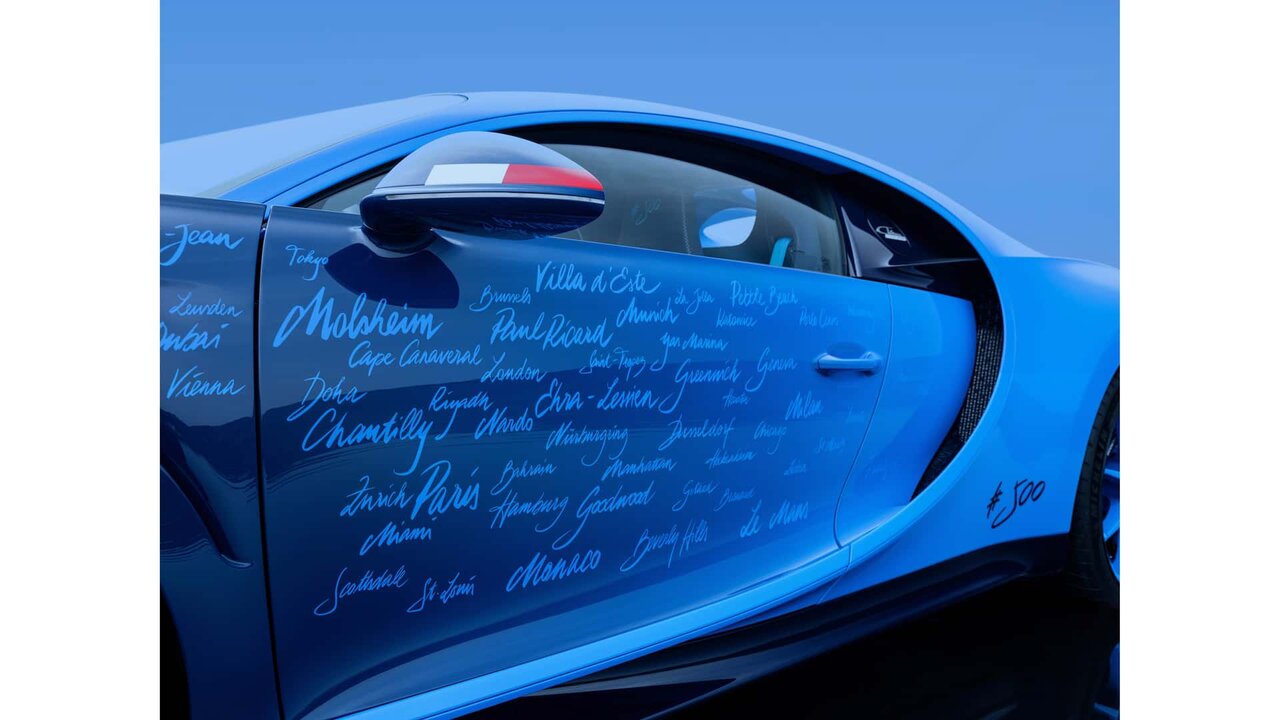 -Jean
Tokyo
Villa d'Este
Leuvden
Brussels
La Jolla
Pebble Beach
Molsheim
Paul Ricard
Munich
Katowice
Dubai
Cape Canaveral
Saint-Tropez
Yas Marina
London
Greenwich
Geneva
Vienna
Doha
Riyadh
Ehra-Lessien
Houston
Milan
Chantilly
Nardo
Nürburgring
Dusseldorf
Chicago
Zurich
Paris
Bahrain
Manhattan
Hamburg
Goodwood
Gstaad
#500
Miami
Beverly Hills
Le Mans
Scottsdale
St. Louis
Monaco